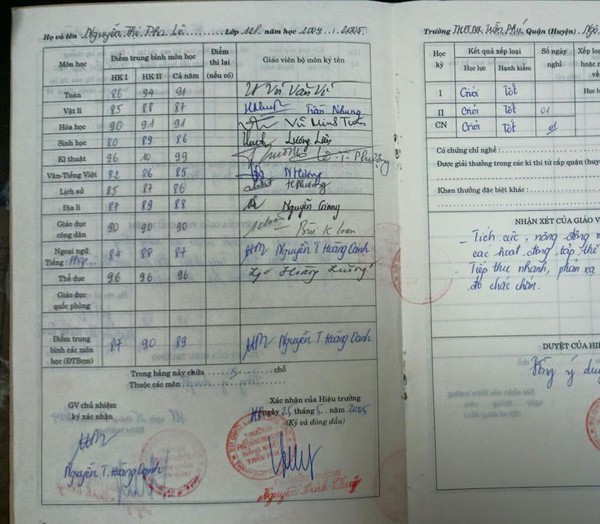 Họ và tên Nguyễn Thị Pha Lê Lớp 12P. năm học 2004 / 2005
Môn học | Điểm trung bình môn học | Điểm thi lại (nếu có) | Giáo viên bộ môn ký tên
HK I | HK II | Cả năm
Toán 86 94 91
Vật lí 85 88 87 Trần Nhung
Hóa học 90 91 91 Vũ Minh Tuấn
Sinh học 80 89 86 Lương Liên
Kĩ thuật 96 10 99 Lê T. Phượng
Văn-Tiếng Việt 82 86 85 N Hương
Lịch sử 85 87 86 H Phương
Địa lí 87 89 88 Nguyễn Giang
Giáo dục công dân 90 90 90 Bùi K Loan
Ngoại ngữ Tiếng: Pháp 84 88 87 Nguyễn T Hoàng Oanh
Thể dục 96 96 96 Hoàng Lương
Giáo dục quốc phòng
Điểm trung bình các môn học (ĐTBcm) 87 90 89 Nguyễn T. Hoàng Oanh
Trong bảng này chữa chỗ
Thuộc các môn
GV chủ nhiệm ký xác nhận
Xác nhận của Hiệu trưởng
Ngày 25 tháng 5 năm 2005
(Ký và đóng dấu)
Nguyễn T. Hoàng Oanh
Trường THPTDL Trần Phú Quận (Huyện)
Học kỳ | Kết quả xếp loại | Số ngày nghỉ | Xếp loại
Học lực | Hạnh kiểm
I Giỏi Tốt
II Giỏi Tốt 01
CN Giỏi Tốt 01
Có chứng chỉ nghề :
Được giải thưởng trong các kì thi từ cấp quận (huyện
Khen thưởng đặc biệt khác :
NHẬN XÉT CỦA GIÁO V
Tích cực, năng động
các hoạt động tập thể
Tiếp thu nhanh, phản xạ
đó chắc chắn.
DUYỆT CỦA HI
Đồng ý duy